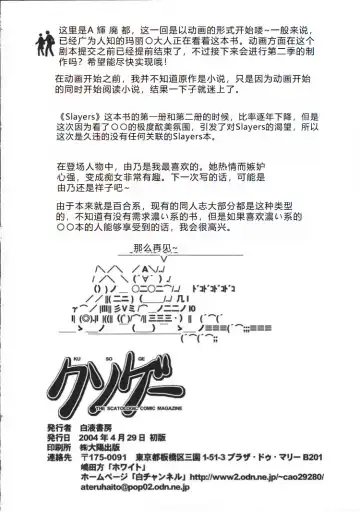 这里是A 輝 廃 都，这一回是以动画的形式开始喽~一般来说，
已经广为人知的玛丽〇大人正在看着这本书。动画方面在这个
剧本提交之前已经提前结束了，不过接下来会进行第二季的制
作吗？希望能尽快实现哦！
在动画开始之前，我并不知道原作是小说，只是因为动画开始
的同时开始阅读小说，结果一下子就迷上了。
《Slayers》这本书的第一册和第二册的时候，比率逐年下降，但是
这次因为看了〇〇的极度耽美氛围，引发了对Slayers的渴望，所以
这次是久违的没有任何关联的Slayers本。
在登场人物中，由乃是我最喜欢的。她热情而嫉妒
心强，变成痴女非常有趣。下一次写的话，可能是
由乃还是祥子吧~
由于本来就是百合系，现有的同人志大部部都是这种类型
的，不知道有没有需求濃い系的书，但是如果喜欢濃い系的
〇〇本的人能够享受到的话，我会很高兴。
那么再见~
KU SO GE
クソゲー
THE SCATOLOGIC COMIC MAGAZINE
発行者 白液書房
発行日 2004年4月29日 初版
印刷所 ㈱大陽出版
連絡先 〒175-0091 東京都板橋区三園1-51-3 プラザ・ドゥ・マリーB201
嶋田方「ホワイト」
ホームページ「白チャンネル」http://www2.odn.ne.jp/~cao29280/
ateruhaito@pop02.odn.ne.jp